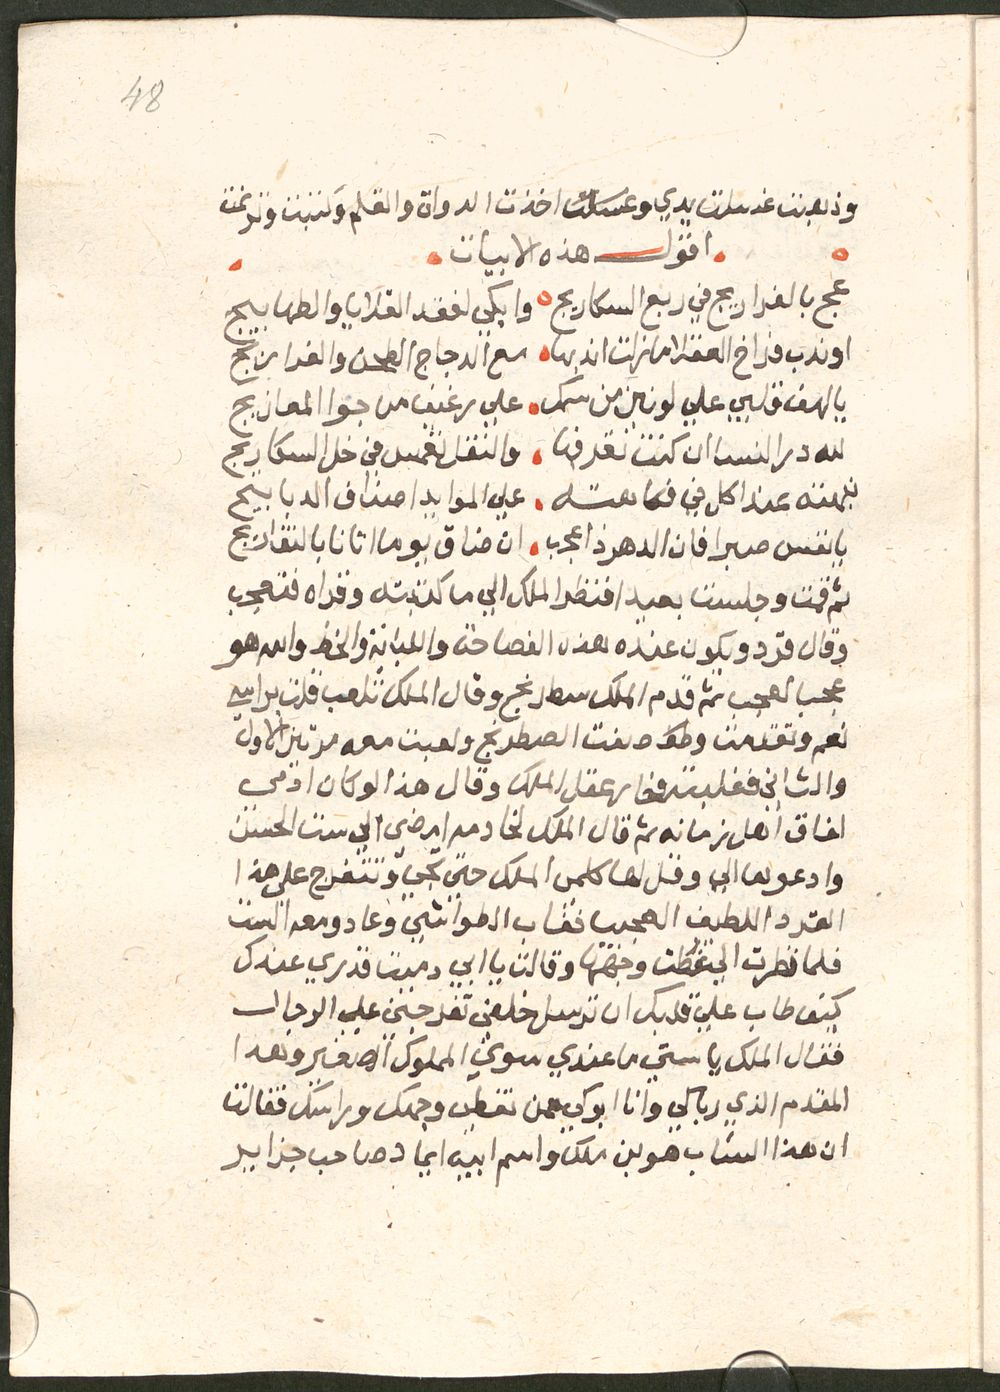 48
وذهبت غسلت يدي وغسلت اخذت الدواة والقلم وكتبت وترنمت
اقول هذه الابيات
عج بالفراريج في ربع السكاريج وابكي لفقد القلايا والطهابيج
اوندب فراخ القطا ما زلت اندبها مع الدجاج المطجن والفراريج
يالهف قلبي علي لونين من سمك علي رغيف من جوا المعاريج
لله در النسا ان كنت تعرفها والنقل تغميس في خل السكاريج
علي الموايد اصناف الدبابيج
يانفس صبرا فان الدهر ذا عجب ان ضاق يوما اتانا بالتفاريج
ثم قمت وجلست بعيدا فنظر الملك الي ما كتبته وقراه فتعجب
وقال قرد ويكون عنده هذه الفصاحة والخط والله هو
عجب العجب ثم قدم الملك سطرنج وقال الملك تلعب قلت براسي
نعم وتقدمت وصفت الصطرنج ولعبت معه مرتين الاول
والثاني فغلبته فحار عقل الملك وقال هذا لو كان ادمي
لفاق اهل زمانه ثم قال الملك لخادمه امضي الي ست الحسن
وادعوها الي وقل لها كلمي الملك حتي تجي وتتفرج علي هذا
القرد اللطيف العجيب فغاب الطواشي وعاد ومعه الست
فلما نظرت الي غطت وجهها وقالت يا ابي عندك
كيف طاب علي قلبك ان ترسل خلفي تفرجني علي الرجال
فقال الملك يا ستي ما عندي سوي المملوك الصغير وهذا
المقدم الذي رباكي وانا ابوكي فمن تغطي وجهك وراسك فقالت
ان هذا الشاب هو بن ملك واسم ابيه ايماد صاحب جزاير